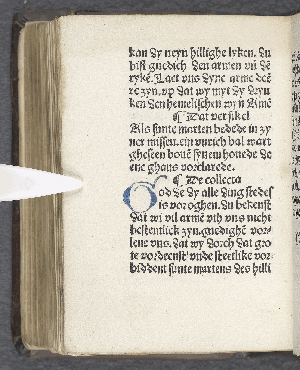 kan dy neyn hillighe lyken. du
bist gnedich den armen vn̄ dē
rykē. Laet vns dyne arme deē
re zyn. vp dat wy myt dy dryn
ken den hemelschen wyn Amē
¶ Dat versikel
Als sunte marten bedede in zy
ner missen. ein vurich bal wart
gheseen bouē synem houede de
ene ghans vorclarede.
¶ De collecta
God de dy alle ding stedes
is vor oghen. du bekenst
dat wi vil armē vth vns nicht
bestentlick zyn. gnedighē vor-
lene vns. dat wy dorch dat gro
te vordeenst vnde steetlike vor-
biddent sunte martens des hilli